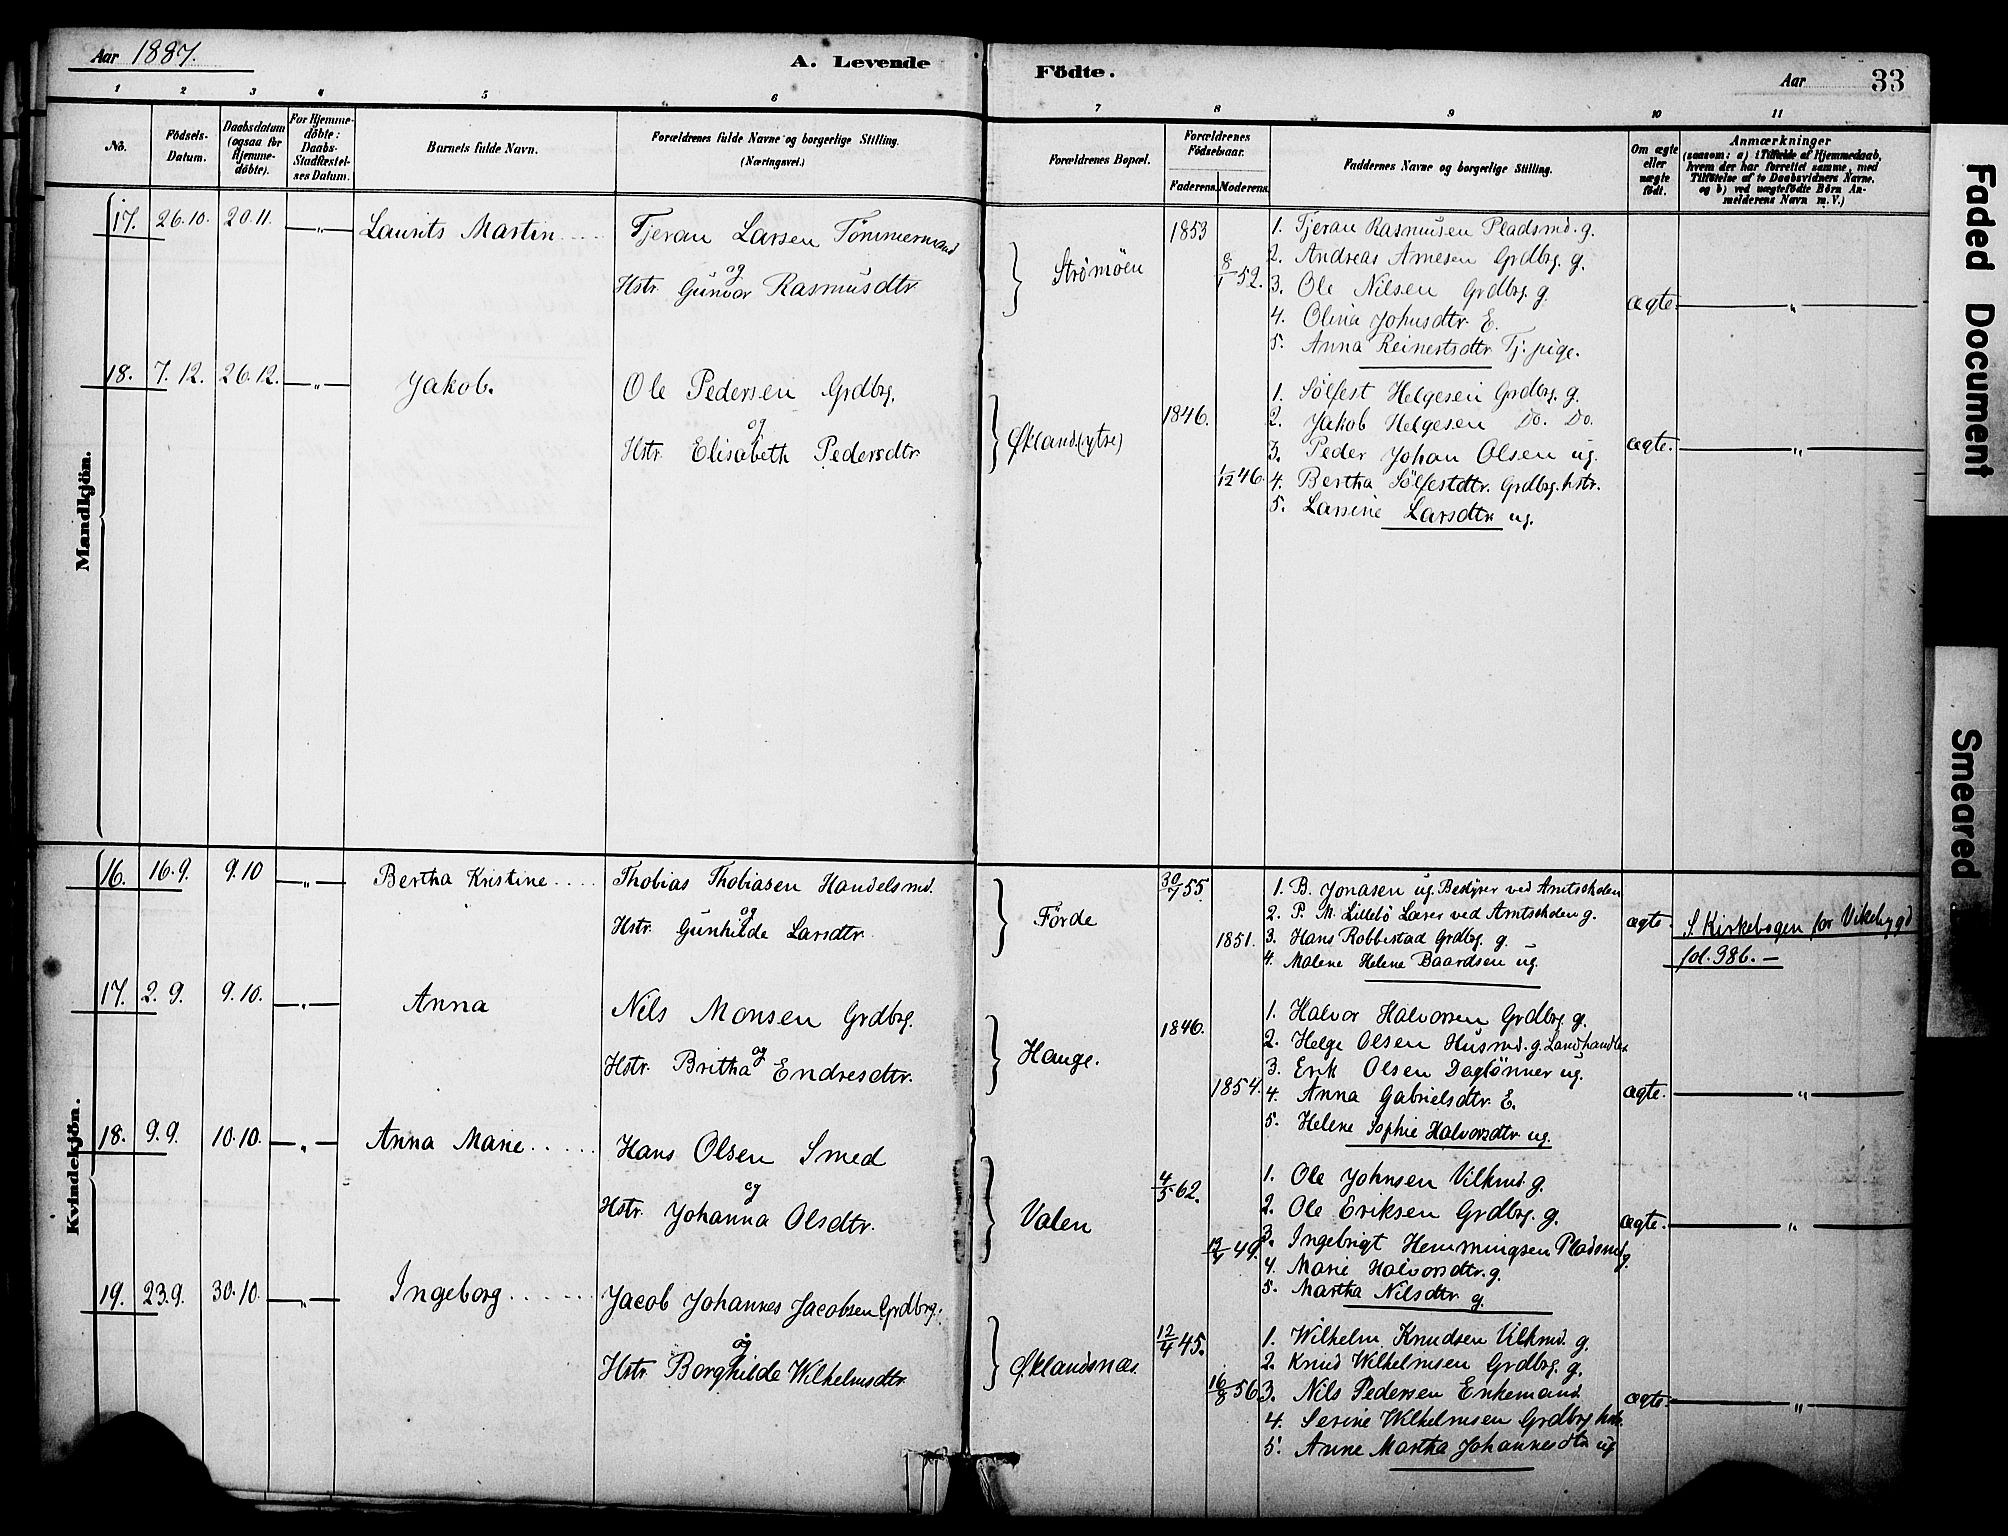 Aar 1887.
A. Levende
Födte.
Aar
33
1 2 3 4 5 6 7 8 9 10 11
No.
Födsels-
Datum.
Daabsdatum
(ogsaa for
Hjemme-
döbte).
For Hjemme-
döbte:
Daabs-
Stadfæstel-
ses Datum.
Barnets fulde Navn.
Forældrenes fulde Navne og borgerlige Stilling.
(Næringsvei.)
Forældrenes Bopæl.
Forældrenes
Födselsaar.
Faderens. Moderens.
Faddernes Navne og borgerlige Stilling.
Om ægte
eller
uægte
födt.
Anmærkninger
(saasom: a) i Tilfælde af Hjemmedaab,
hvem der har forrettet samme, med
Tilföielse af to Daabsvidners Navne,
og b) ved uægtefödte Börn An-
melderens Navn m. V.)
Mandkjön.
17. 26.10. 20.11. — „ — Laurits Martin.... Tjeran Larsen Tömmermand
og
Hstr. Gunvor Rasmusdtr.
Strömöen
1853
8/1 52.
1. Tjeran Rasmusen Pladsmd. g.
2. Andreas Arnesen Grdbrg. g.
3. Ole Nilsen Grdbrg. g.
4. Olina Johnsdtr. E.
5. Anna Reinertsdtr. Tj. pige.
ægte. — „ —
18. 7.12. 26.12. — „ — Jakob. Ole Pedersen Grdbrg.
og
Hstr. Elisabeth Pedersdtr.
Økland (ytre)
1846.
1/12 46.
1. Sölfest Helgesen Grdbrg. g.
2. Jakob Helgesen Do. Do.
3. Peder Johan Olsen ug.
4. Bertha Sölfestdtr. Grdbrg. hstr.
5. Larsine Larsdtr. ug.
ægte. — „ —
Kvindekjön.
16. 16.9. 9.10 — „ — Bertha Kristine.... Thobias Thobiasen Handelsmd.
og
Hstr. Gunhilde Larsdtr.
Förde
30/7 55.
1851.
1. B. Jonasen ug. Bestyrer ved Amtsskolen
2. P. M. Lillebö Lærer ved Amtsskolen g.
3. Hans Robberstad Grdbrg. g.
4. Malene Helene Baardsen ug.
ægte. S. Kirkebogen for Vikebygd
fol. 986. —
17. 2.9. 9.10. — „ — Anna Nils Monsen Grdbrg.
og
Hstr. Britha Endresdtr.
Hauge.
1846.
1854.
1. Halvor Halvorsen Grdbrg. g.
2. Helge Olsen Husmd. g. Landhandler
3. Erik Olsen Daglönner ug.
4. Anna Gabrielsdtr. E.
5. Helene Sophie Halvorsdtr. ug.
ægte. — „ —
18. 9.9. 10.10. — „ — Anna Marie..... Hans Olsen Smed
og
Hstr. Johanna Olsdtr.
Valen
4/5 62.
49.
1. Ole Johnsen Vilkmd. g.
2. Ole Eriksen Grdbrg. g.
3. Ingebrigt Hemmingsen Pladsmd. g.
4. Marie Halvorsdtr. g.
5. Martha Nilsdtr. g.
ægte. — „ —
19. 23.9. 30.10. — „ — Ingeborg...... Jacob Johannes Jacobsen Grdbrg.
og
Hstr. Borghilde Wilhelmsdtr.
Øklandsnæs.
12/4 45.
16/8 56.
1. Wilhelm Knudsen Vilkmd. g.
2. Knud Wilhelmsen Grdbrg. g.
3. Nils Pedersen Enkemand
4. Serine Wilhelmsen Grdbrg. hstr.
5. Anne Martha Johannesdtr. ug.
ægte. — „ —
Faded Document
Smeared